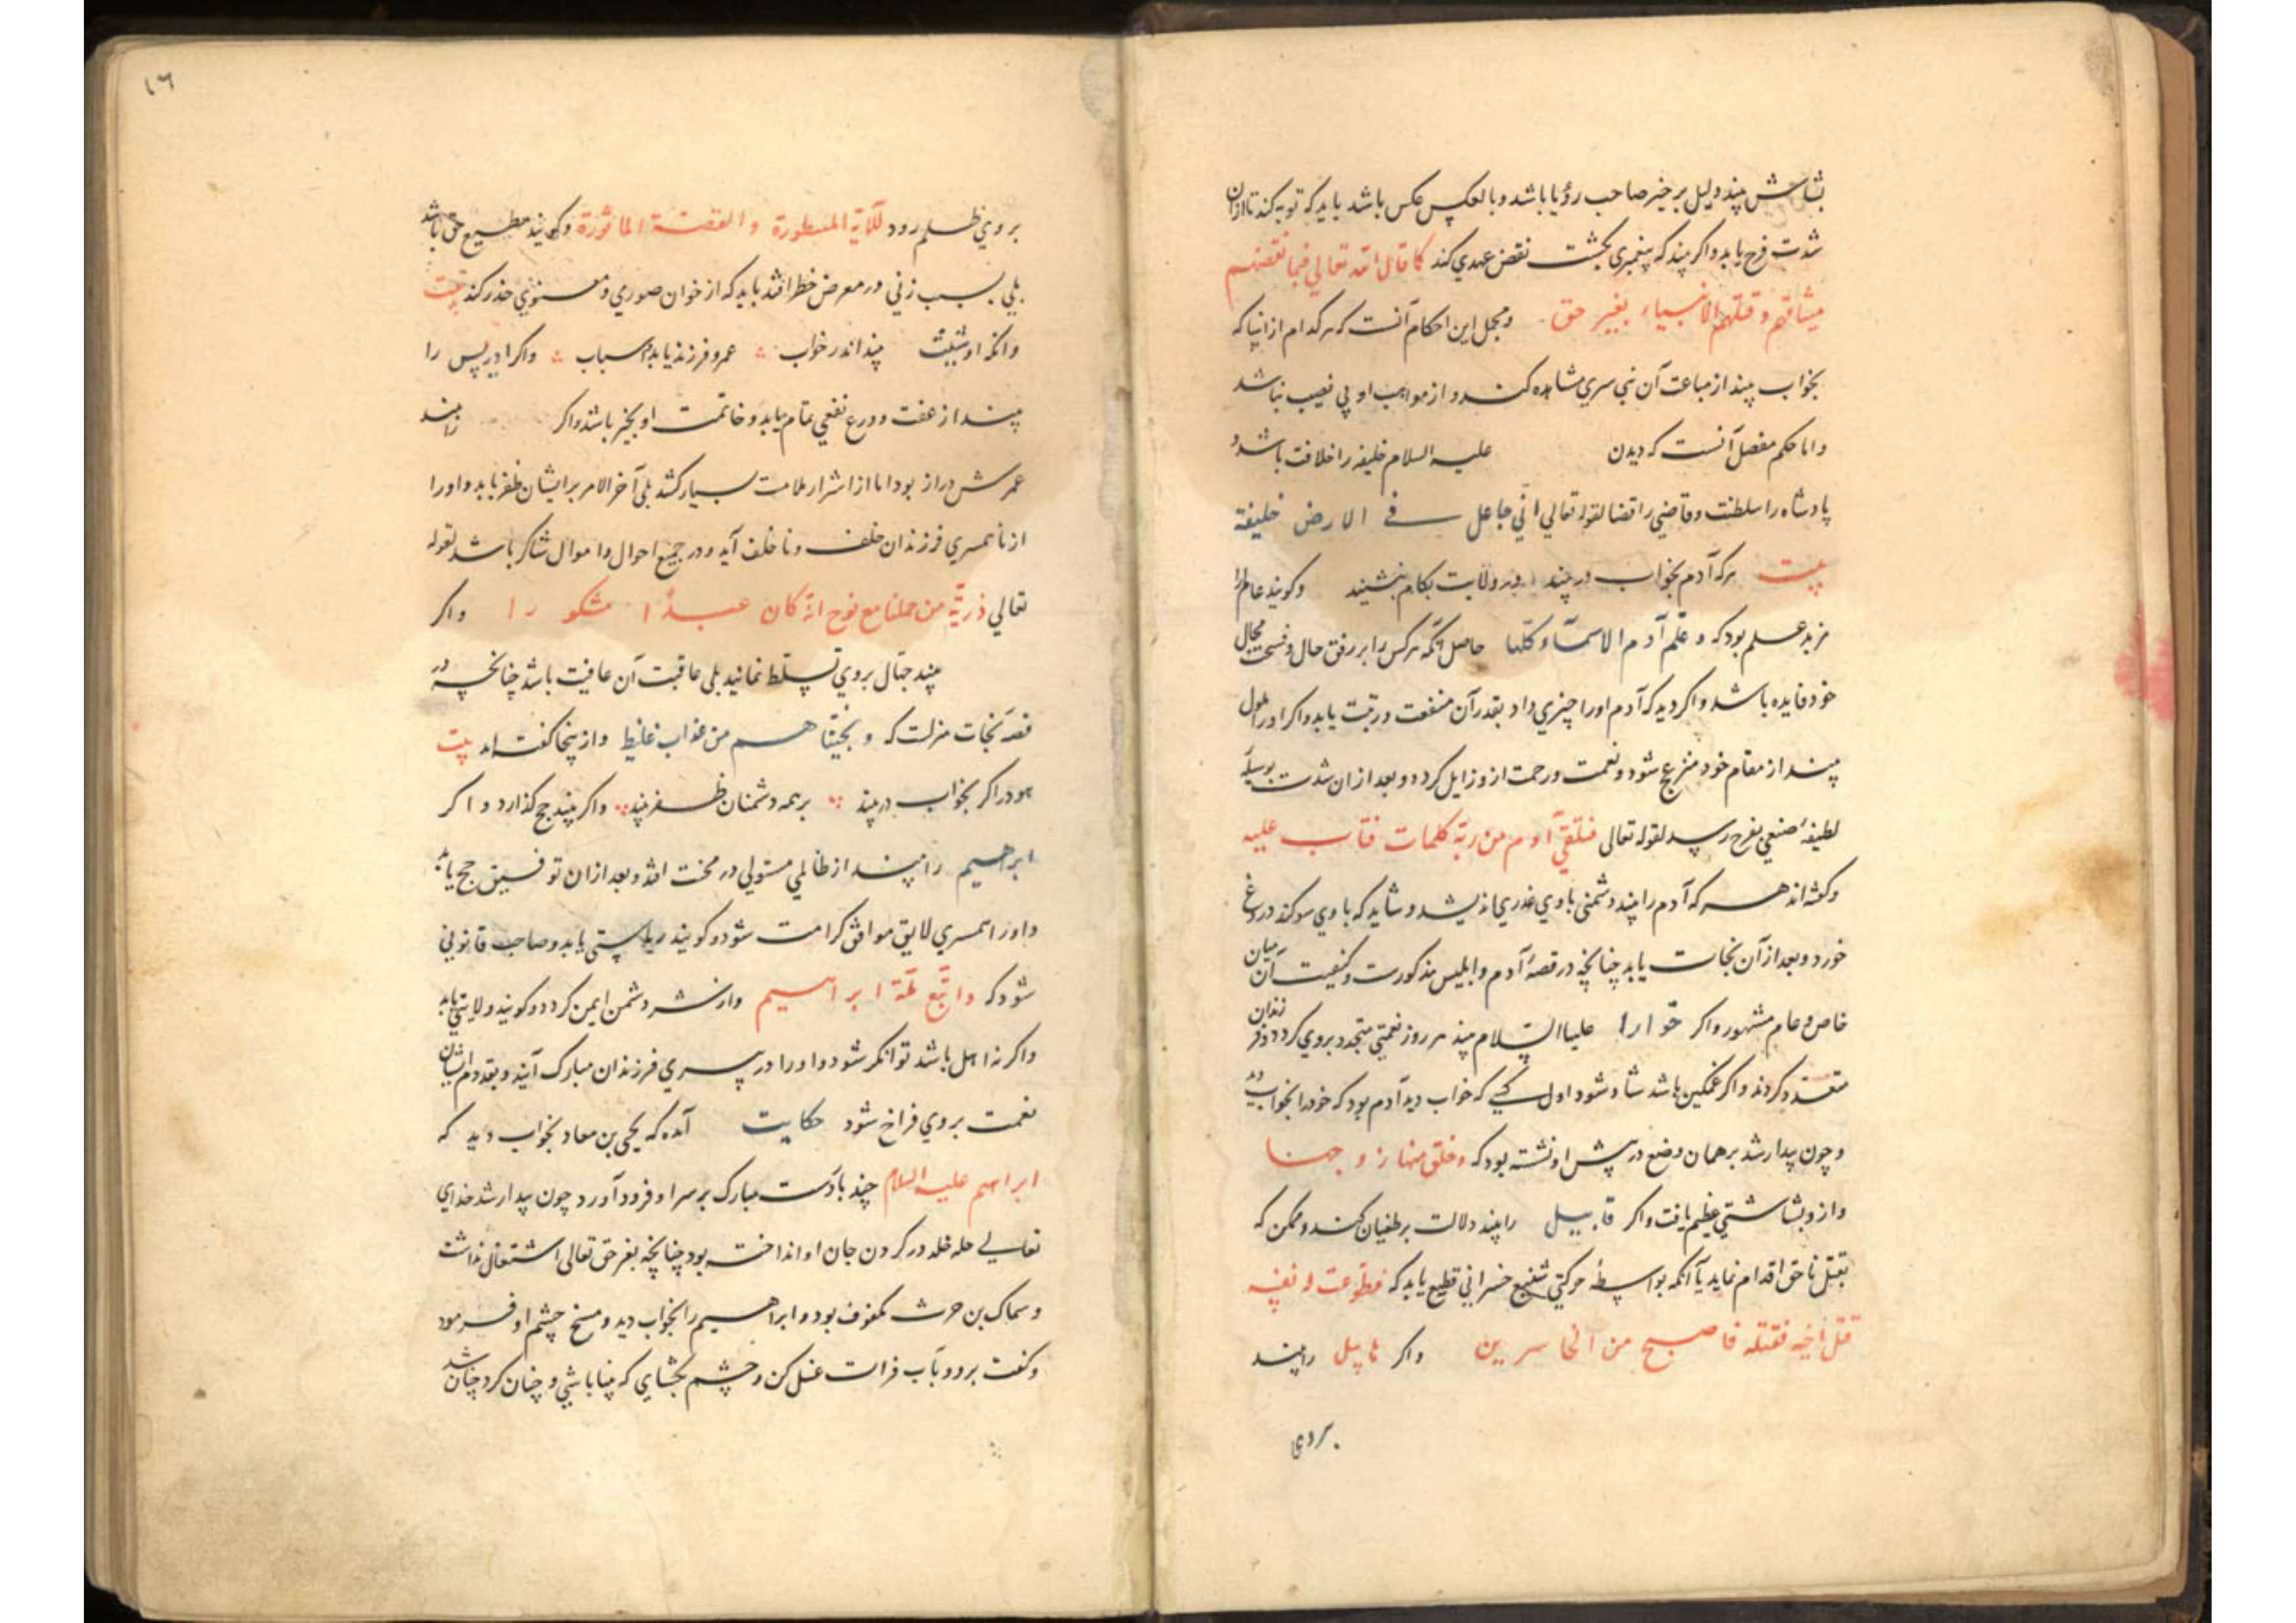 بشاش بیند دلیل بر خیر صاحب رؤیا باشد و بالعکس عکس باشد باید که توبه کند تا از ان
شدت فرح یابد و اکر بیند که پیغمبری بکشت نقض عهدی کند کما قال الله تعالی فبما نقضهم
میثاقهم و قتلهم الانبیاء بغیر حق و مجمل این احکام آنست که هر کدام از انبیا که
بخواب بیند از متابعت آن نبی سری مشاهده کند و از مواهب او بی نصیب نباشد
و اما حکم مفصل آنست که دیدن علیه السلام خلیفه را خلافت باشد و
پادشاه را سلطنت و قاضی را قضا لقوله تعالی انی جاعل فی الارض خلیفة
بیت هر که آدم بخواب در بیند در ولایت بکام بنشیند و کویند عالم را
مزید علم بود که و علّم آدم الاسمآء کلّها حاصل آنکه هر کس را بر وفق حال و فسحت مجال
خود فایده باشد و اکر دید که آدم او را چیزی داد بقدر آن منفعت و رتبت یابد و اکر او را ملول
بیند از مقام خود منزعج شود و نعمت و رحمت ازو زایل کردد و بعد از ان شدت بوسیلهٔ
لطیفهٔ صنعی بفرح رسد لقوله تعالی فتلقّی آدم من ربّه کلمات فتاب علیه
و کفته‌اند هر که آدم را بیند دشمنی با وی غدری اندیشد و شاید که با وی سوکند دروغ
خورد و بعد از آن نجات یابد چنانچه در قصهٔ آدم و ابلیس مذکورست و کیفیت آن میان
خاص و عام مشهور و اکر حوّا را علیها السّلام بیند هر روز نعمتی متجدد بروی کردد و فرزندان
متعدد کردند و اکر غمکین باشد شاد شود اول کسی که خواب دید آدم بود که خود را بخواب دید
و چون بیدار شد بر همان وضع در پیش او نشسته بود که و خلق منها زوجها
و ازو بشاشتی عظیم یافت و اکر قابیل را بیند دلالت بر طغیان کند و ممکن که
بقتل ناحق اقدام نماید یا آنکه بواسطهٔ حرکتی شنیع خسرانی قطیع یابد که فطوعت له نفسه
قتل اخیه فقتله فاصبح من الخاسرین و اکر هابیل را بیند
بر وی
١٦
بر وی ظلم رود للآیة المسطورة و القصّة الماثورة و کویند مطیع حق باشد
بلی بسبب زنی در معرض خطر افتد باید که از خوان صوری و معنوی حذر کند بیت
وانکه او شیث بیند اندر خواب عمر و فرزند یابد و اسباب و اکر ادریس را
بیند از عفت و ورع نفعی تمام یابد و خاتمت او بخیر باشد و اکر را بیند
عمرش دراز بود اما از اشرار ملامت بسیار کشد بلی آخر الامر بر ایشان ظفر یابد و او را
از ناهمسری فرزندان خلف و ناخلف آید و در جمیع احوال و اموال شاکر باشد لقوله
تعالی ذریّة من حملنا مع نوح انّه کان عبدًا شکورا و اکر
بیند جهّال بر وی تسلّط نمایند بلی عاقبت آن عافیت باشد چنانچه در
قصهٔ نجات منزلست که و نجّیناهم من عذاب غلیظ و از ینجا کفته‌اند بیت
هود را کر بخواب در بیند بر همه دشمنان ظفر بیند و اکر بیند حج کذارد و اکر
ابرهیم را بیند از ظالمی مستولی در محنت افتد و بعد از ان توفیق حج یابد
و او را همسری لایق موافق کرامت شود و کویند ریاستی یابد و صاحب قانونی
شود که و اتّبع ملّة ابراهیم و از شر دشمن ایمن کردد و کویند ولایتی یابد
و اکر نه اهل باشد توانکر شود و او را در پیری فرزندان مبارک آیند و بقدوم ایشان
نعمت بروی فراخ شود حکایت آمده که یحیی بن معاد بخواب دید که
ابراهیم علیه السلام چند بار دست مبارک بر سر او فرود آورد چون بیدار شد خدای
تعالی حله خله در کردن جان او انداخته بود چنانچه بغیر حق تعالی اشتغال نداشت
و سماک بن حرث مکفوف بود و ابراهیم را بخواب دید و مسح چشم او فرمود
و کفت برو و بآب فرات غسل کن و چشم بکشای که بینا باشی و چنان کرد چنان شد